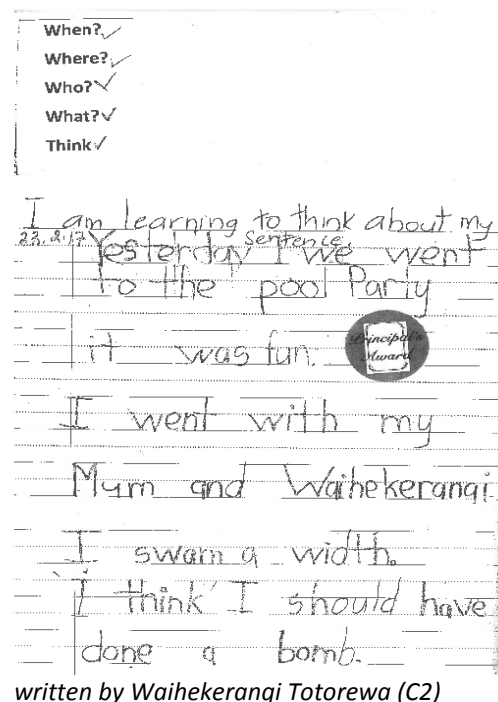 When?✓
Where?✓
Who?✓
What?✓
Think✓
I am learning to think about my
Sentence.
23.2.17 Yesterday I we went
to the pool Party
it was fun. Principal's Award
I went with my
Mum and Waihekerangi
I swam a width.
I think I should have
done a bomb.
written by Waihekerangi Totorewa (C2)